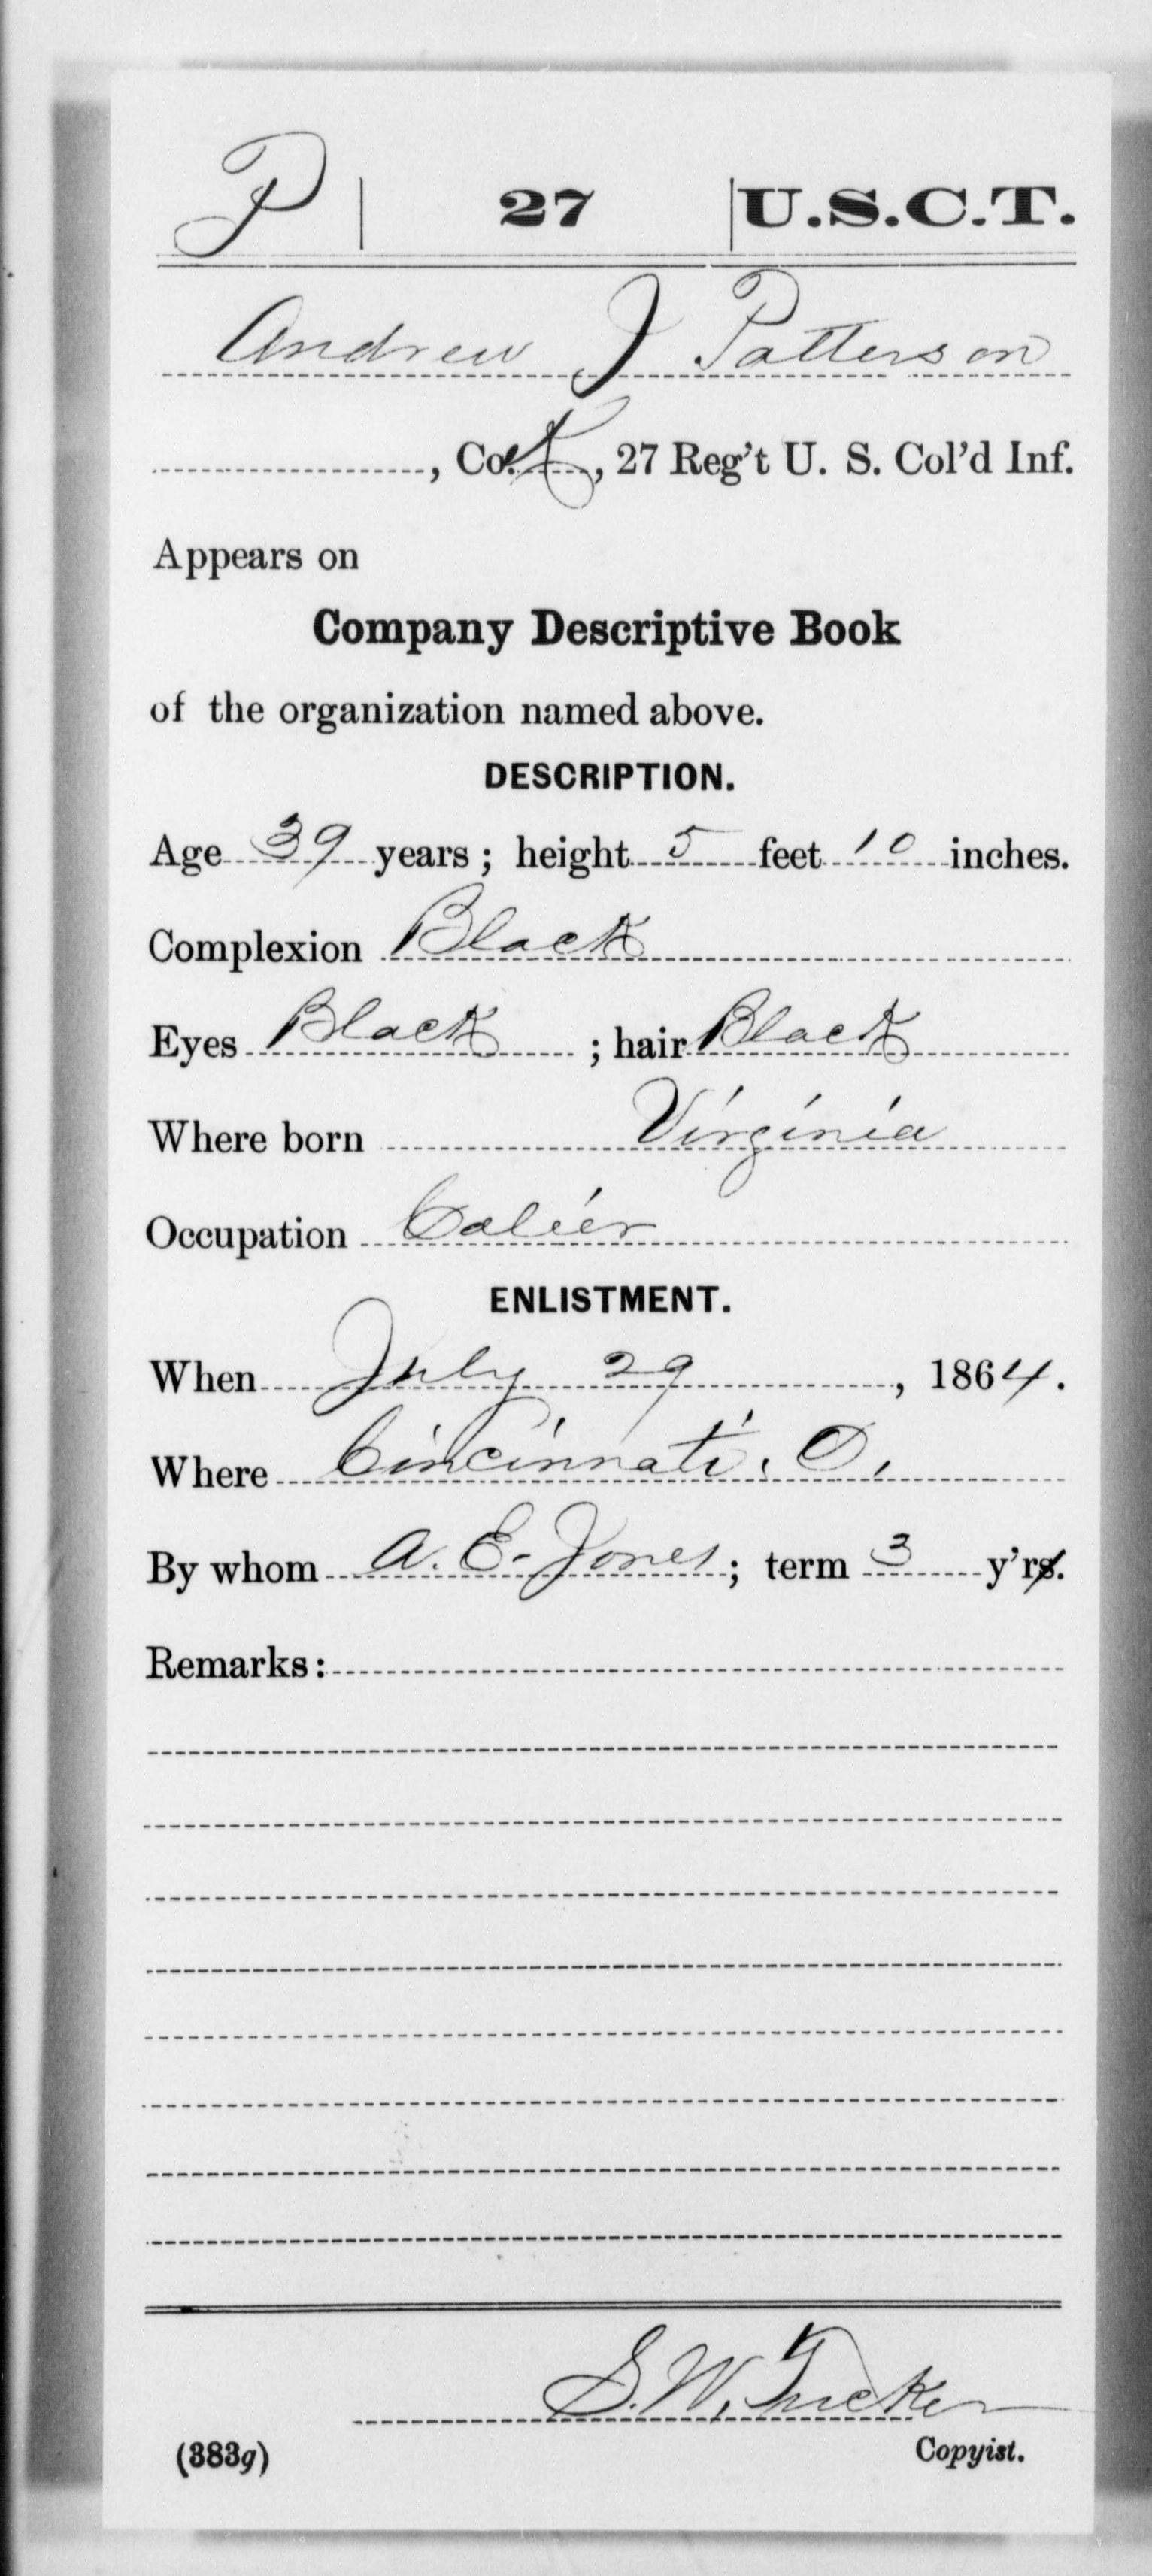 P | 27 | U.S.C.T.
Andrew J Patterson
, Co. K, 27 Reg't U. S. Col'd Inf.
Appears on
Company Descriptive Book
of the organization named above.
DESCRIPTION.
Age 39 years; height 5 feet 10 inches.
Complexion Black
Eyes Black; hair Black
Where born Virginia
Occupation Calier
ENLISTMENT.
When July 29, 1864.
Where Cincinnati, O.
By whom A. E. Jones; term 3 y'rs.
Remarks:
S. W. Tucker
(383g) Copyist.